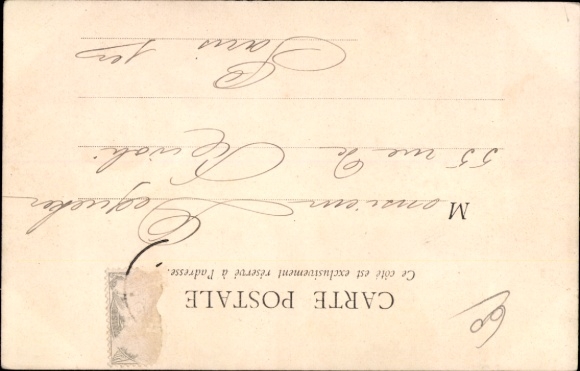 CARTE POSTALE
Ce côté est exclusivement réservé à l'adresse.
Monsieur Dequeker
55 rue de Rivoli
Paris 1er
60